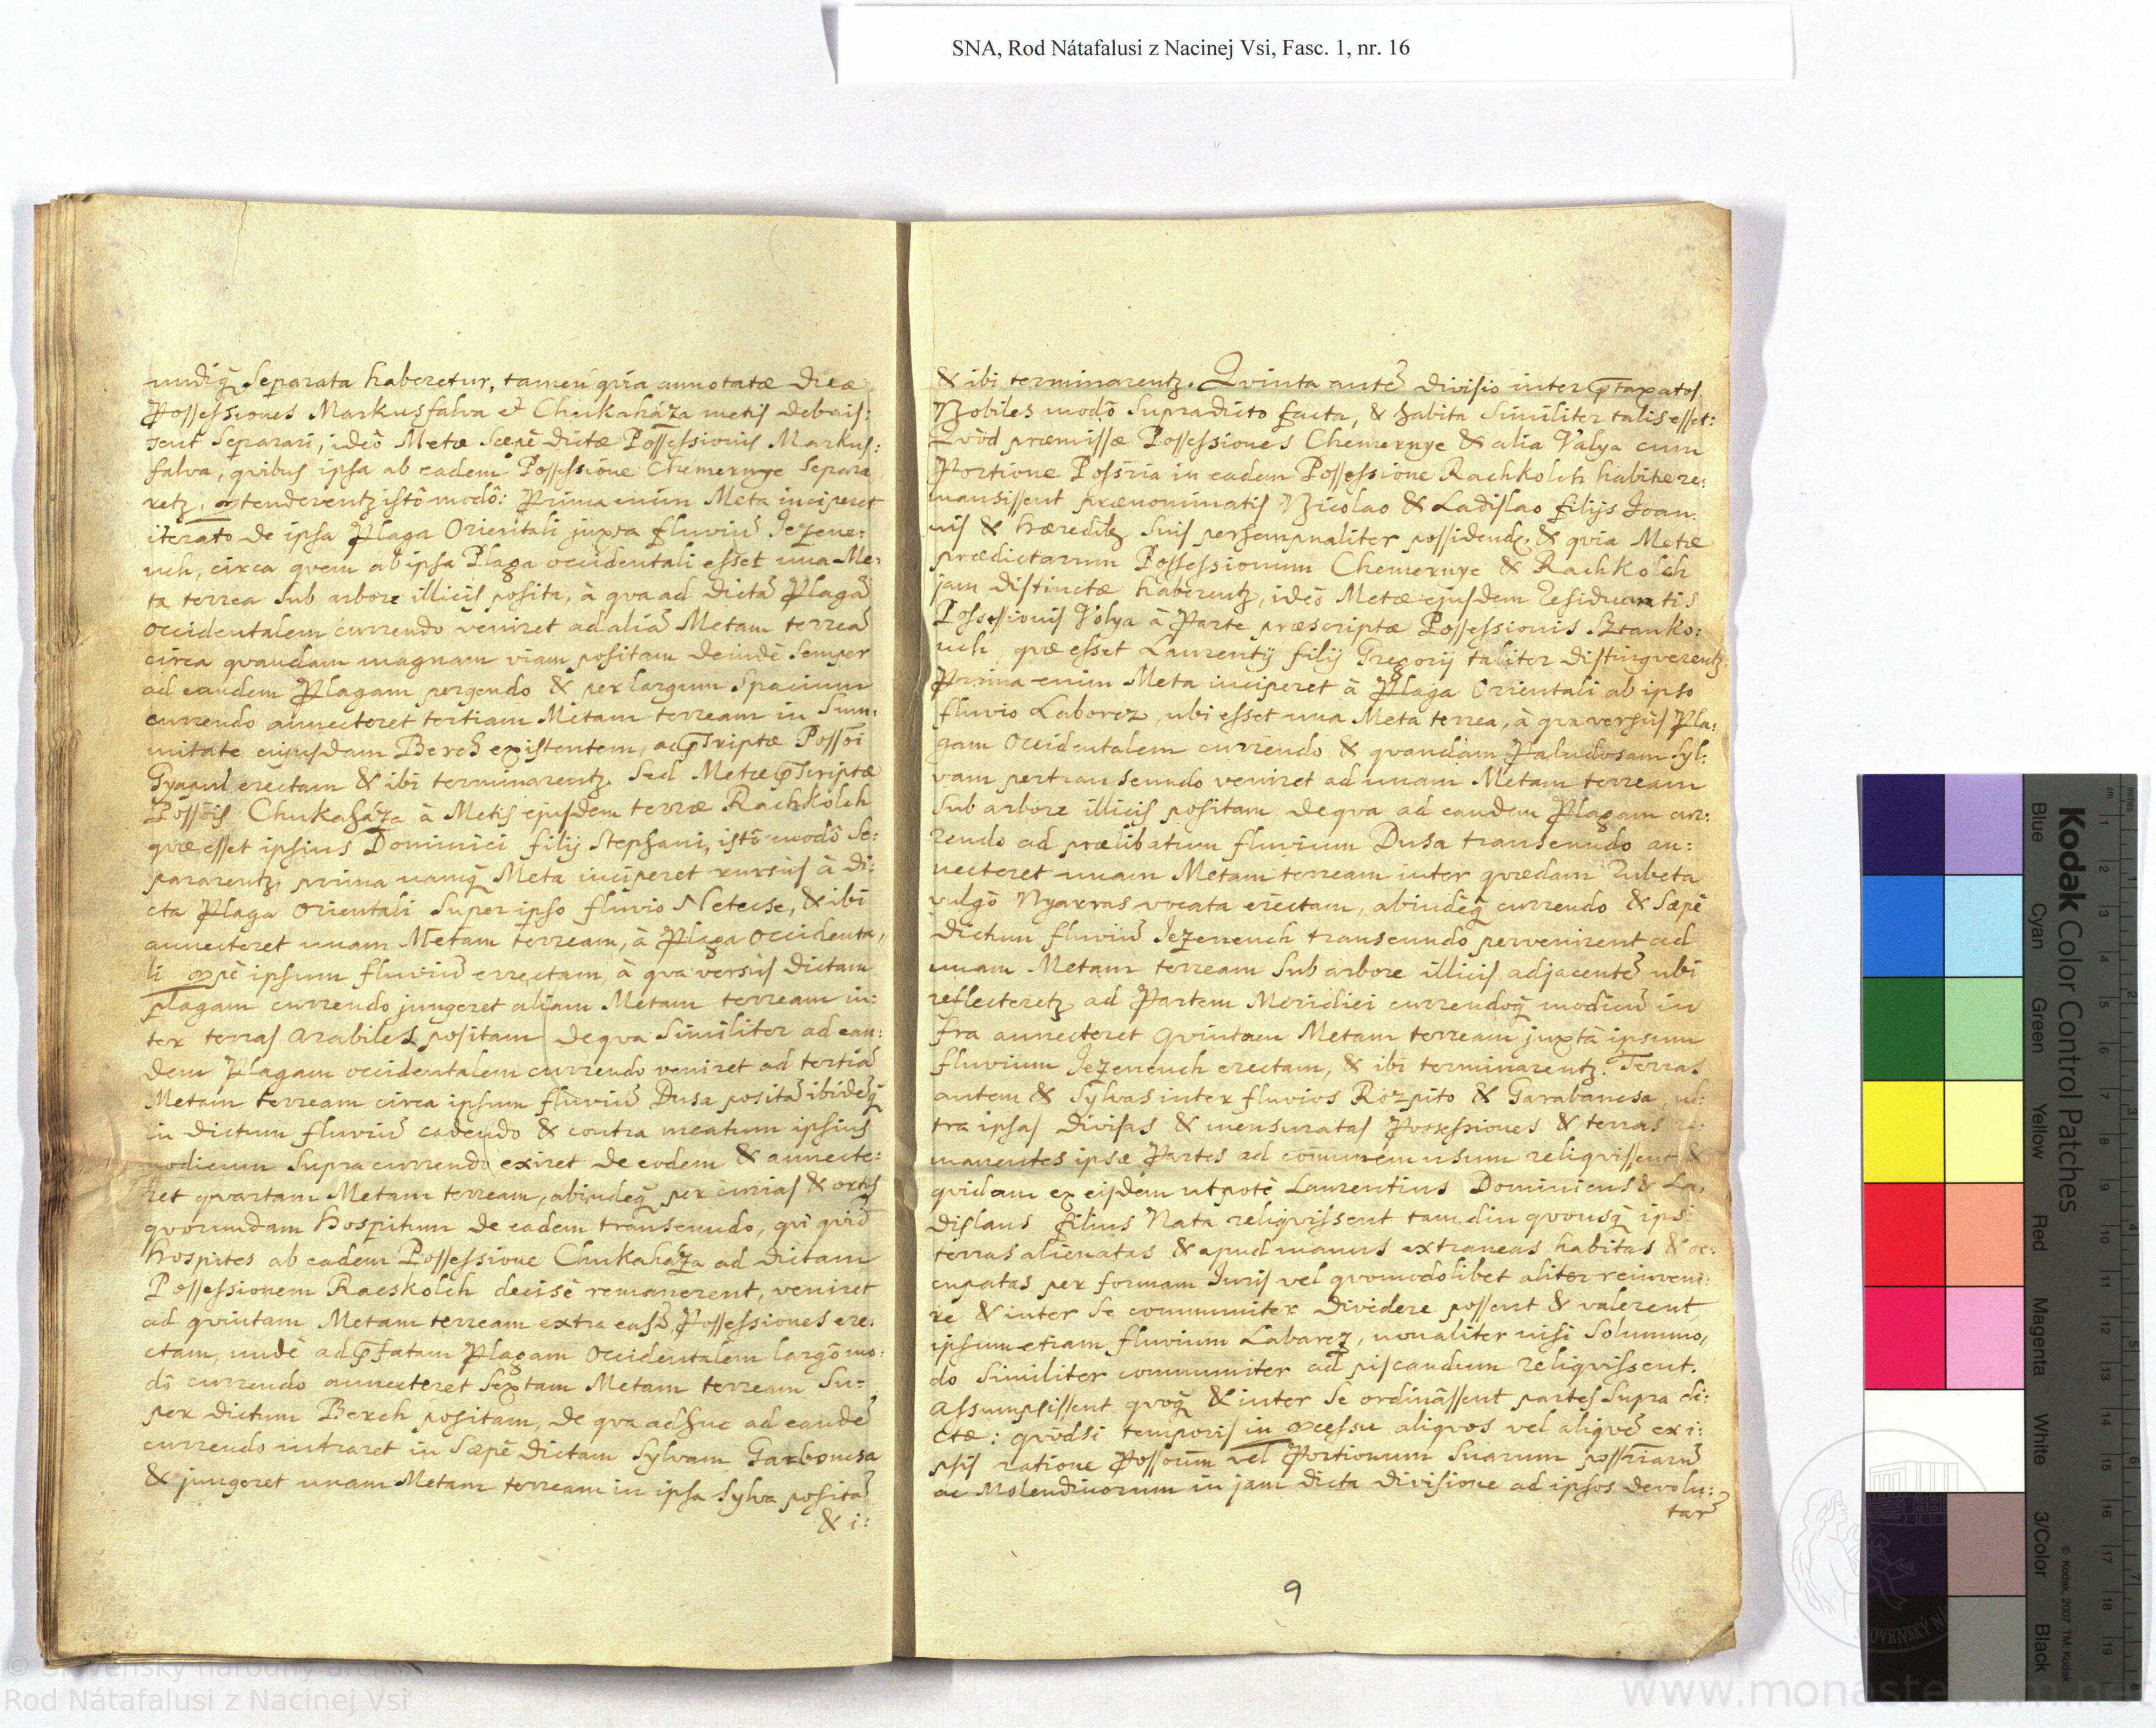 SNA, Rod Nátafalusi z Nacinej Vsi, Fasc. 1, nr. 16
undiq̃ Separata haberetur, tamen qvia annotatæ dictæ
Possessiones Markusfalva et Chukaháza metis debuis:
sent Separari, ideò Metæ Sæpè dictæ Possessionis Markus:
falva, qvibus ipsa ab eadem Possessione Chemernye Separa
retʒ, ostenderentʒ istô modô: Prima enim Meta inciperet
iterato de ipsa Plaga Orientali juxta fluviũ Jezene:
uch, circa qvem ab ipsa Plaga occidentali esset una Me:
ta terrea sub arbore illicis posita, à qva ad dictã Plagã
Occidentalem currendo veniret ad aliã Metam terreã
circa qvandam magnam viam positam deindè Semper
ad eandem Plagam pergendo & per largum Spacium
currendo annecteret tertiam Metam terream in Sum:
mitate cujusdam Berch existentem, ac p̃scriptæ Possõi
Gyapul erectam & ibi terminarentʒ. Sed Metæ p̃scriptæ
Possõis Chukaháza à Metis ejusdem terræ Rachkolch
qvæ esset ipsius Dominici filij Stephani, istô modô Se:
pararentʒ, prima namq̃ Meta inciperet rursùs à di:
cta Plaga Orientali Super ipso fluvio Netecse, & ibi
annecteret unam Metam terream, à Plaga Occidenta,
li ipsum fluviũ errectam, à qva versùs dictam
plagam currendo jungeret aliam Metam terream in:
ter terras arabiles positam de qva Similiter ad ean:
dem Plagam occidentalem currendo veniret ad tertiã
Metam terream circa ipsum fluviũ Dusa positã ibidẽq̃
in dictum fluviũ cadendo & contra meatum ipsius
modicum Supra currendo exiret de eodem & annecte:
ret qvartam Metam terream, abindeq̃ per curias & ortos
qvorumdam Hospitum de eadem transeundo, qvi qvid
Hospites ab eadem Possessione Chukaháza ad dictam
Possessionem Racskolch decisè remanerent, veniret
ad qvintam Metam terream extra easd̃ Possessiones ere:
ctam, undè ad p̃fatam Plagam Occidentalem largô mo:
dô currendo annecteret Sextam Metam terream Su:
per dictum Berch positam, de qva adhuc ad eandẽ
currendo intraret in Sæpè dictam Sylvam Garboncsa
& jungeret unam Metam terream in ipsa Sylva positã
& i:
& ibi terminarentʒ. Qvinta autẽ divisio inter p̃taxatos
Nobiles modô Supradicto facta, & habita Similiter talis esset:
Qvòd præmissæ Possessiones Chemernye & alia Valya cum
Portione Possria in eadem Possessione Rachkolch habita re:
mansissent prænominatis Nicolao & Ladislao filijs Joan:
nis & hæreditʒ Suis persempnaliter possidendę, & qvia Metæ
prædictarum Possessionum Chemernye & Rachkolch
jam distinctæ haberentʒ, ideò Metæ ejusdem
Possessionis Volya à Parte præscriptæ Possessionis Sztanko:
uch, qvæ esset Laurentij filij Gregorij taliter distingverentʒ:
Prima enim Meta inciperet à Plaga Orientali ab ipso
fluvio Laborcz, ubi esset una Meta terrea, à qva versùs Pla:
gam Occidentalem currendo & qvandam Paludosam Syl:
vam pertranseundo veniret ad unam Metam terream
Sub arbore illicis positam de qva ad eandem Plagam cur:
rendo ad prælibatum fluvium Dusa transeundo an:
necteret unam Metam terream inter qvædam Rubeta
vulgò Nyarras vocata erectam, abindeq̃ currendo & Sæpè
dictum fluviũ Jezeneuch transeundo pervenirent ad
unam Metam terream Sub arbore illicis adjacentẽ ubi
reflecteretʒ ad Partem Meridiei currendoq̃ modicũ in
fra annecteret qvintam Metam terream juxtà ipsum
fluvium Jezeneuch erectam, & ibi terminarentʒ. Terras
autem & Sylvas inter fluvios Rozpito & Garabancsa, ul:
tra ipsas divisas & mensuratas Possessiones & terras re:
manentes ipsæ Partes ad cõmunem usum reliqvissent &
qvidam ex eisdem utpotè Laurentius Dominicus & La:
dislaus filius Nata reliqvissent tamdiu qvousq̃ ipsi
terras alienatas & apud manus extraneas habitas & oc:
cupatas per formam Juris vel qvomodolibet aliter reinveni:
re & inter se communiter dividere possent & valerent,
ipsum etiam fluvium Labarcz, nonaliter nisi Solummo,
do Similiter communiter ad piscandum reliqvissent.
Assumpsissent qvoq̃ & inter se ordinâssent partes Supra di:
ctæ: qvòdsi temporis in aliqvos vel aliqvẽ ex i:
psis ratione Possoũm vel Portionum Suarum possriarũ
ac Molendinorum in jam dicta divisione ad ipsos devolu:
tarũ
9
Kodak Color Control Patches
Blue
Cyan
Green
Yellow
Red
Magenta
White
3/Color
Black
© Kodak, 2007 TM: Kodak
Rod Nátafalusi z Nacinej Vsi